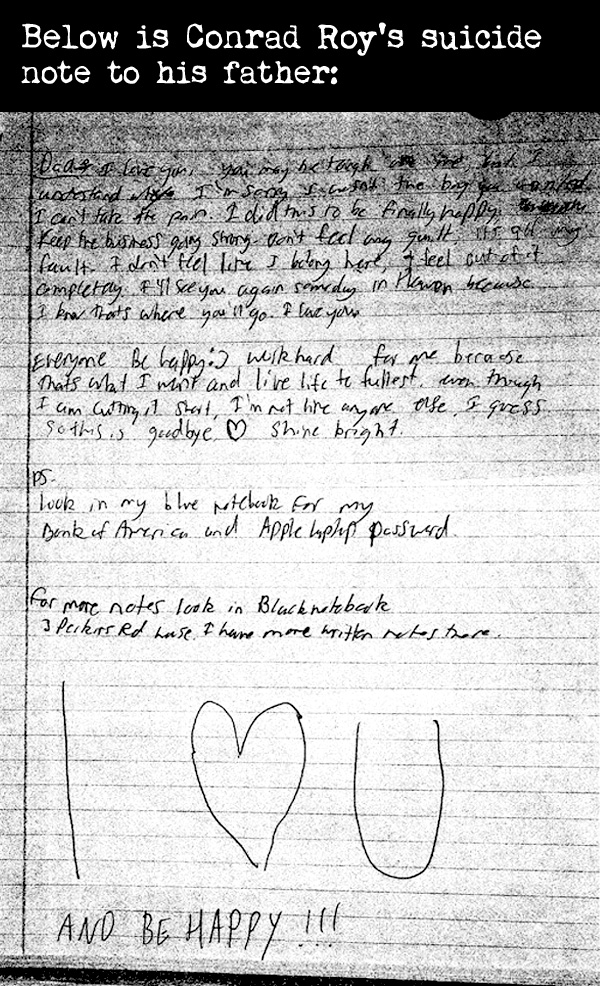 Below is Conrad Roy's suicide
note to his father:
Dad I love you. you may be tough and I
understand I'm sorry I wasn't the boy you wanted
I can't take the pain. I did this to be finally happy.
Keep the business going strong. Don't feel any guilt. it's all my
fault. I don't feel like I belong here, I feel out of it
completely. I'll see you again someday in Heaven because
I know that's where you'll go. I love you
Everyone Be happy :) work hard for me because
thats what I want and live life to fullest. even though
I am cutting it short, I'm not like anyone else, I guess
So this is goodbye ♡ shine bright.
PS.
look in my blue notebook for my
Bank of America and Apple laptop password.
For more notes look in Black notebook
3 Perkins Rd house. I have more written notes there.
I ♡ U
AND BE HAPPY !!!